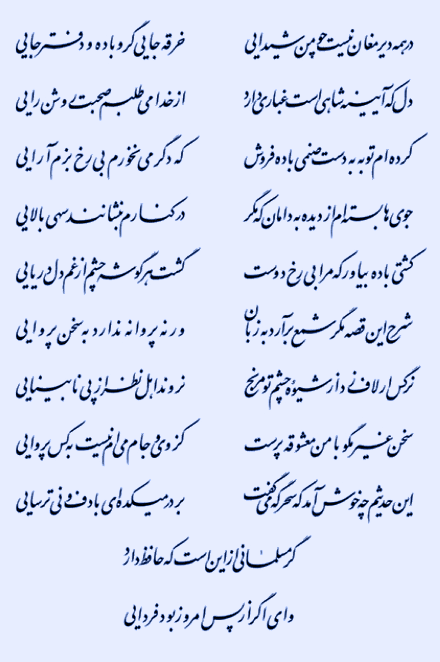 در همه دیر مغان نیست چو من شیدایی خرقه جایی گرو باده و دفتر جایی
دل که آیینه شاهی است غباری دارد از خدا می طلبم صحبت روشن رایی
کرده ام توبه به دست صنمی باده فروش که دگر می نخورم بی رخ بزم آرایی
جوی ها بسته ام از دیده به دامان که مگر در کنارم بنشانند سهی بالایی
کشتی باده بیاور که مرا بی رخ دوست گشت هر گوشه چشم از غم دل دریایی
شرح این قصه مگر شمع برآرد به زبان ور نه پروانه ندارد به سخن پروایی
نرگس ار لاف زد از شیوه چشم تو مرنج نروند اهل نظر از پی نابینایی
سخن غیر مگو با من معشوقه پرست کز وی و جام می ام نیست به کس پروایی
این حدیثم چه خوش آمد که سحرگه می گفت بر در میکده ای با دف و نی ترسایی
گر مسلمانی از این است که حافظ دارد
وای اگر از پس امروز بود فردایی